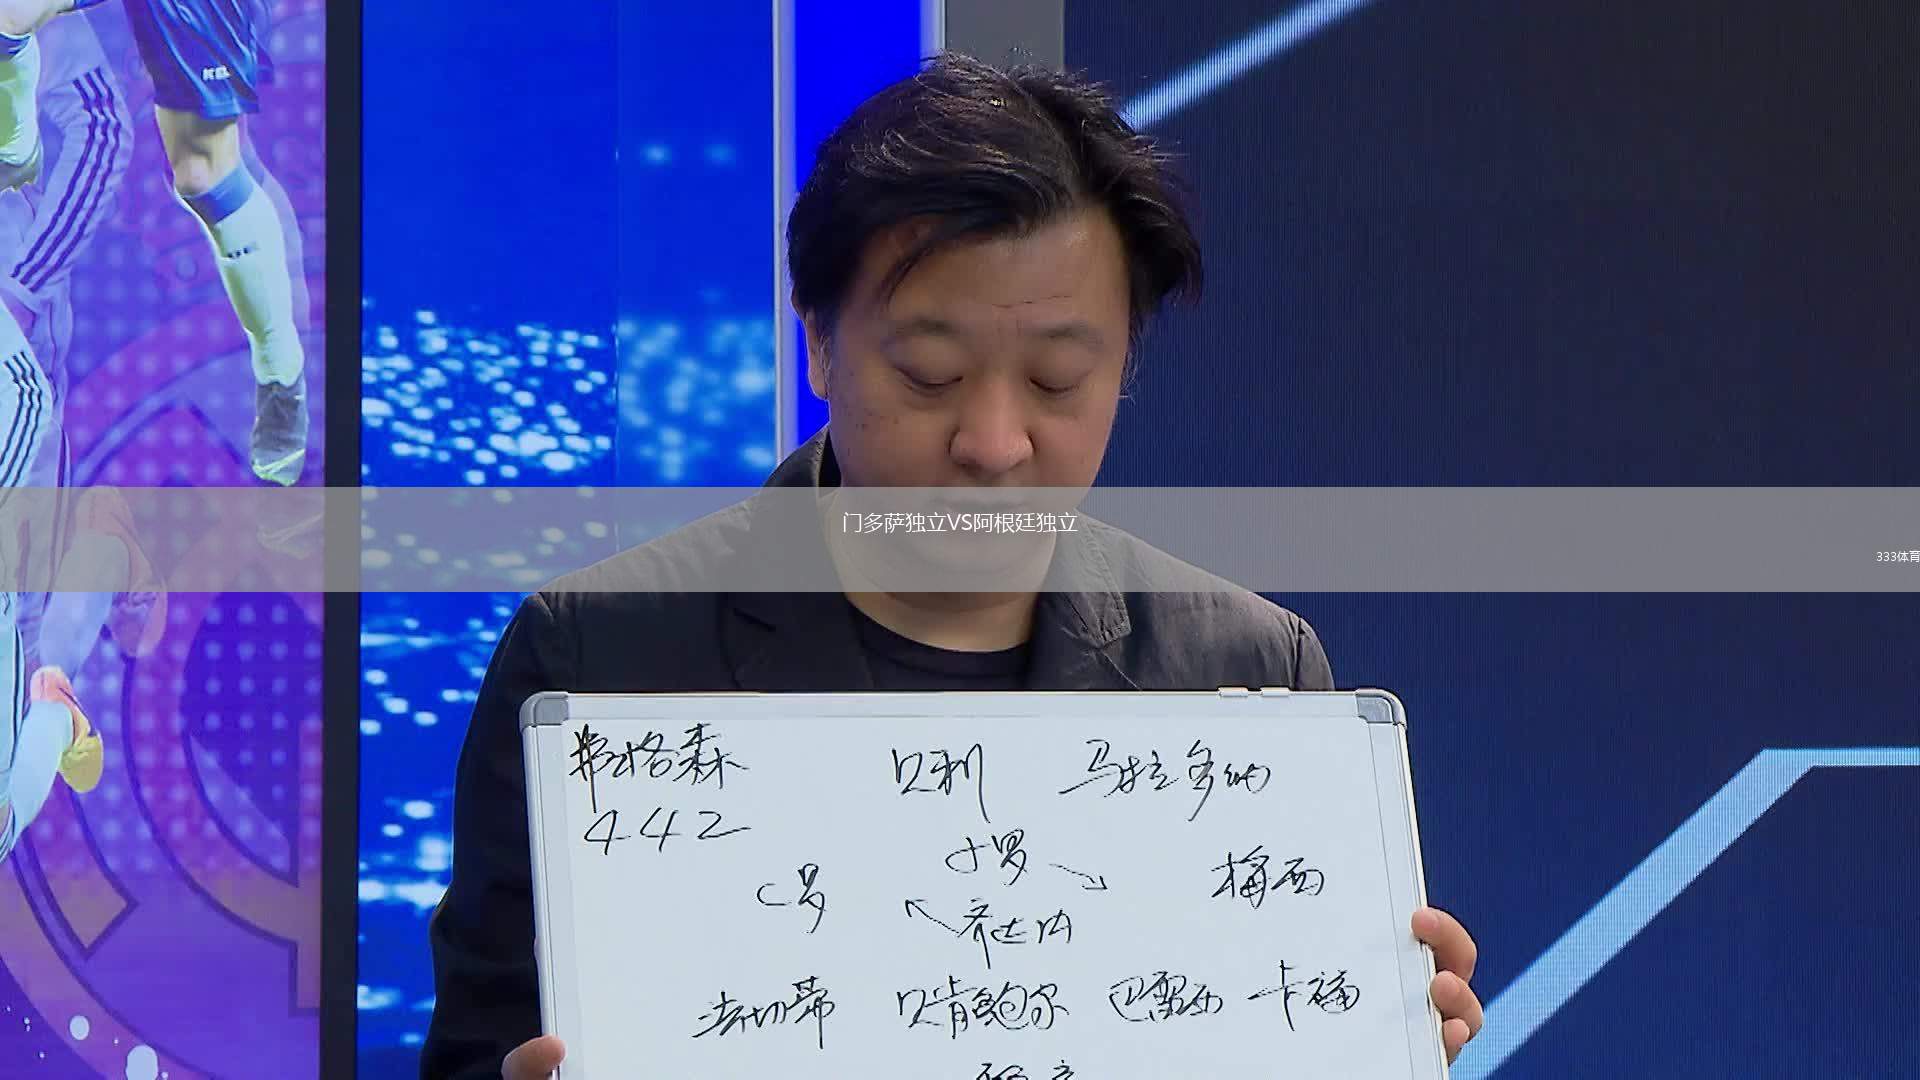 门多萨独立VS阿根廷独立
333体育
弗格森 贝利 马拉多纳
442
小罗
C罗 梅西
齐达内
法切蒂 贝肯鲍尔 巴雷西 卡福